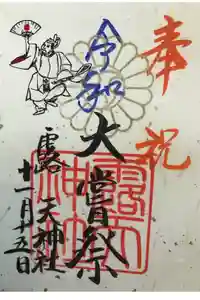 奉祝
令和
大嘗祭
露天神社
十一月十五日